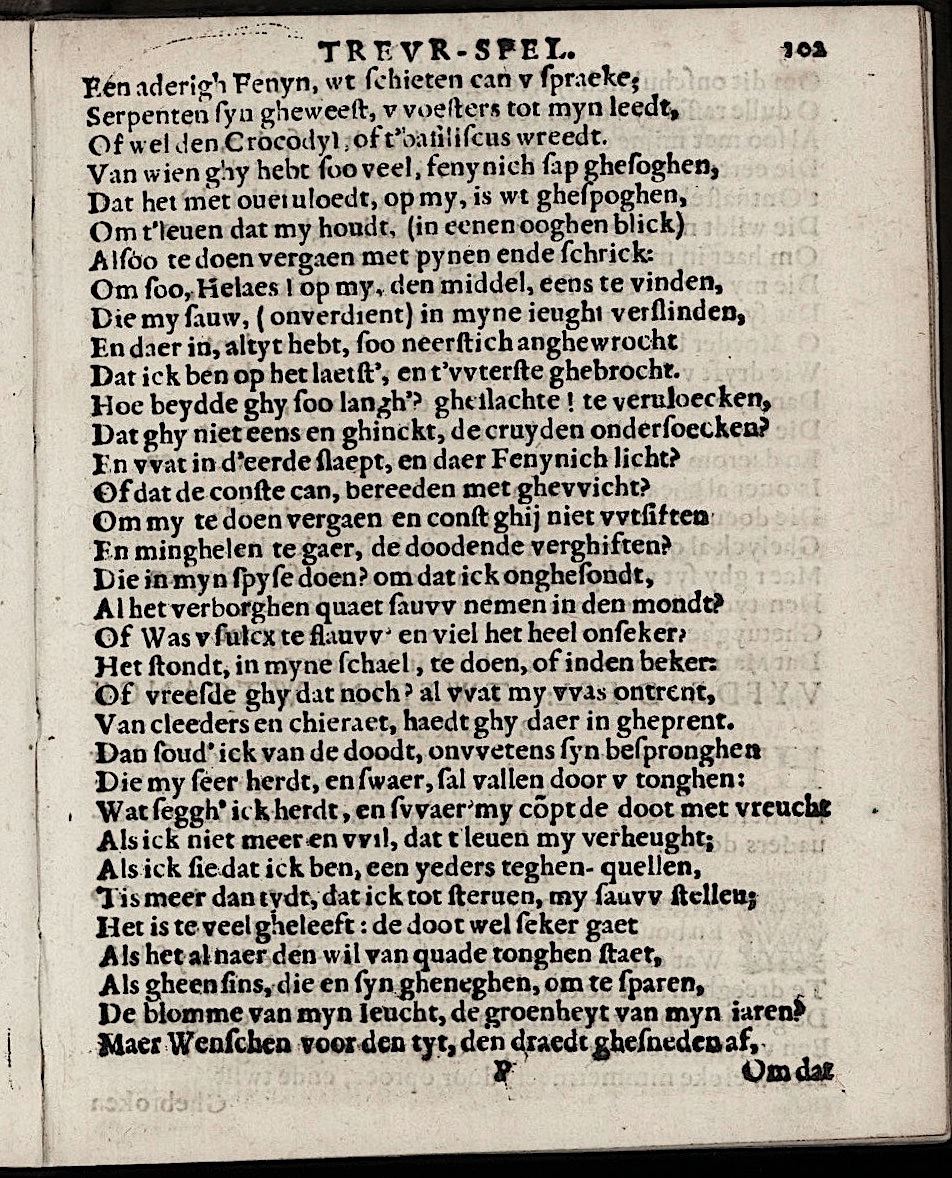 TREVR-SPEL. 102
Een aderigh Fenyn, wt ſchieten can v ſpraeke;
Serpenten ſyn gheweeſt, v voeſters tot myn leedt,
Of wel den Crocodyl, of t'baſiliſcus wreedt.
Van wien ghy hebt ſoo veel, fenynich ſap gheſoghen,
Dat het met oueruloedt, op my, is wt gheſpoghen,
Om t'leuen dat my houdt, (in eenen ooghen blick)
Alſoo te doen vergaen met pynen ende ſchrick:
Om ſoo, Helaes! op my, den middel, eens te vinden,
Die my ſauw, (onverdient) in myne ieught verſlinden,
En daer in, altyt hebt, ſoo neerſtich anghewrocht
Dat ick ben op het laetſt', en t'vvterſte ghebrocht.
Hoe beydde ghy ſoo langh'? gheſlachte! te veruloecken,
Dat ghy niet eens en ghinckt, de cruyden onderſoecken?
En vvat in d'eerde ſlaept, en daer Fenynich licht?
Of dat de conſte can, bereeden met ghevvicht?
Om my te doen vergaen en conſt ghij niet vvtſiften
En minghelen te gaer, de doodende verghiften?
Die in myn ſpyſe doen? om dat ick ongheſondt,
Al het verborghen quaet ſauvv nemen in den mondt?
Of Was v ſulcx te flauvv' en viel het heel onſeker?
Het ſtondt, in myne ſchael, te doen, of inden beker:
Of vreeſde ghy dat noch? al vvat my vvas ontrent,
Van cleeders en chieraet, haedt ghy daer in gheprent.
Dan ſoud' ick van de doodt, onvvetens ſyn beſpronghen
Die my ſeer herdt, en ſwaer, ſal vallen door v tonghen:
Wat ſeggh' ick herdt, en ſvvaer' my cõpt de doot met vreucht
Als ick niet meer en vvil, dat t'leuen my verheught;
Als ick ſie dat ick ben, een yeders teghen-quellen,
'Tis meer dan tydt, dat ick tot ſteruen, my ſauvv ſtellen;
Het is te veel gheleeft: de doot wel ſeker gaet
Als het al naer den wil van quade tonghen ſtaet,
Als gheenſins, die en ſyn gheneghen, om te ſparen,
De blomme van myn Ieucht, de groenheyt van myn iaren?
Maer Wenſchen voor den tyt, den draedt gheſneden af,
P Om dat